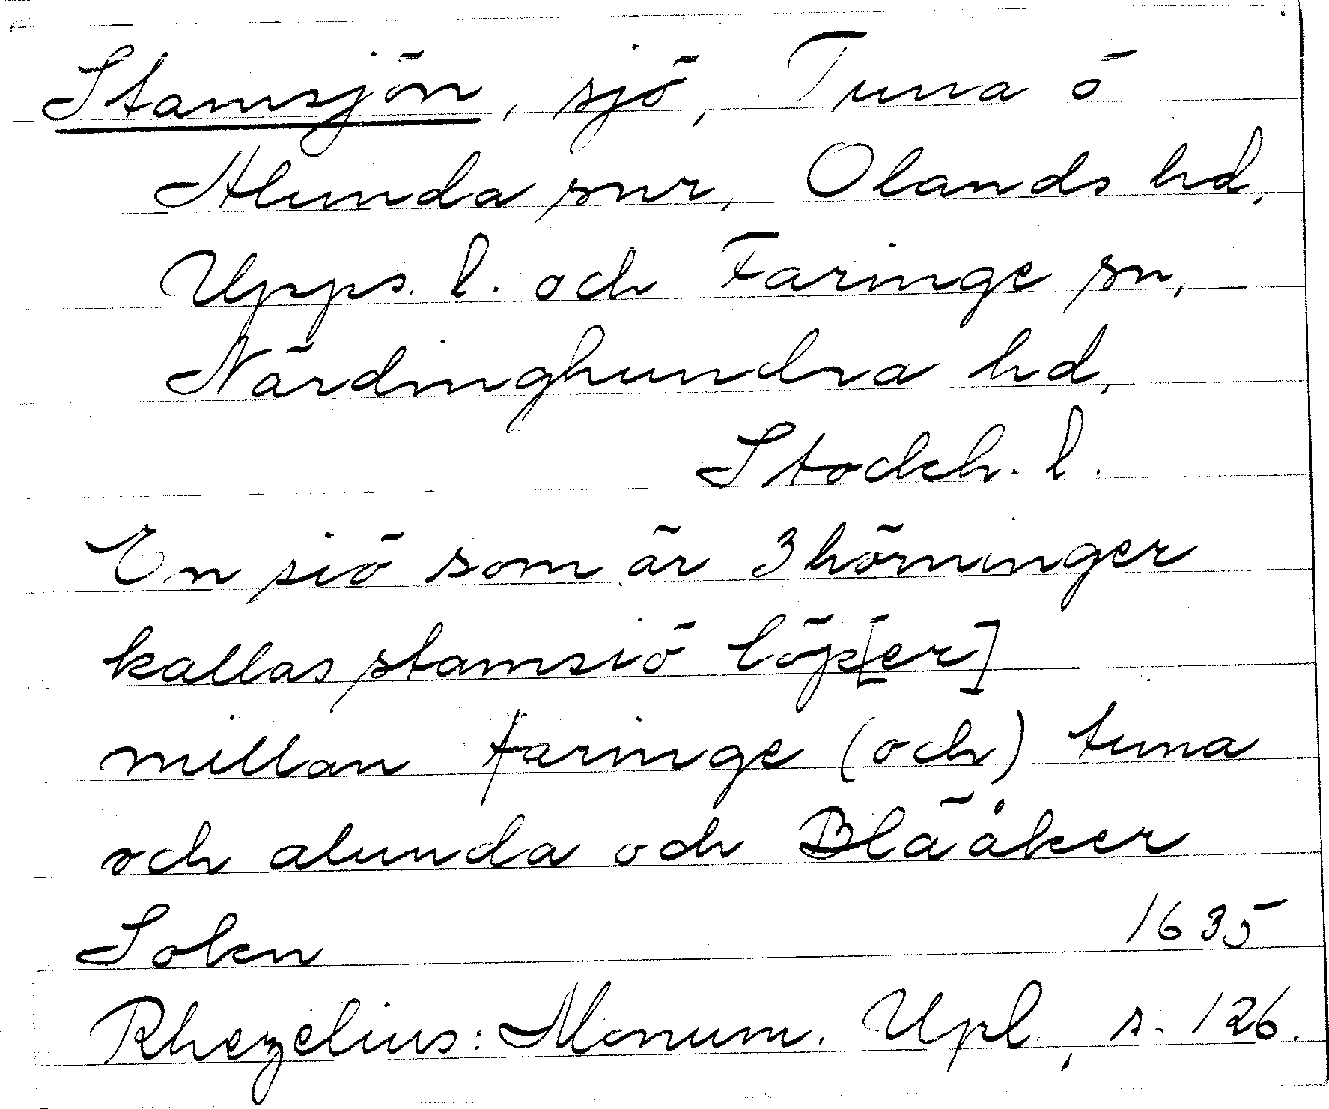 Stamsjön, sjö, Tuna o
Alunda snr, Olands hd,
Upps. l. och Faringe sn,
Närdinghundra hd,
Stockh. l.
En siö som är 3hörninger
kallas stamsiö löp[er]
millan faringe (och) tuna
och alunda och Blääåker
Sokn 1635
Rhezelius: Monum. Upl., s. 126.